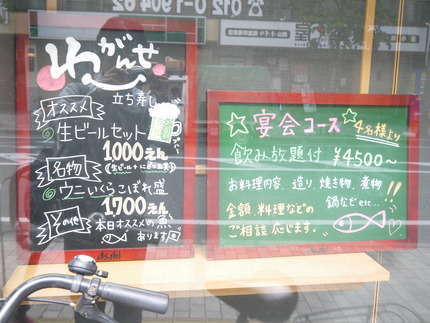 012 0-19046
わがんせ
立ち寿し
オススメ
◎生ビールセット
1,000えん
名物
◎ウニいくらこぼれ盛
1,700えん
本日オススメの魚
あります
Asahi
☆宴会コース☆
4名様より
飲み放題付 ¥4500〜
お料理内容、造り、焼き物、煮物
鍋などetc...!!
金額、料理などの
ご相談応じます。
Asahi